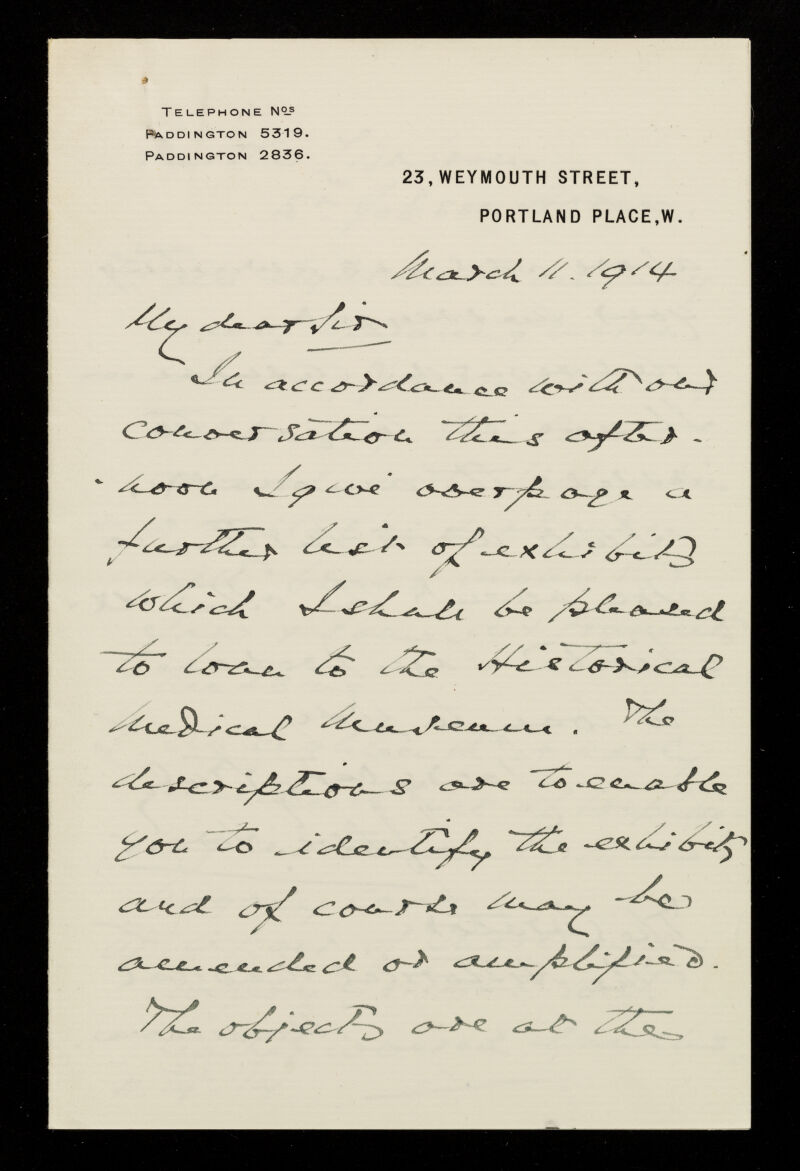 TELEPHONE Nos
PADDINGTON 5319.
PADDINGTON 2836.
23, WEYMOUTH STREET,
PORTLAND PLACE, W.
March 11. 1914
My dear Sir
In accordance with our
conversation this after-
noon I give overpage a
further list of exhibits
which I shall be pleased
to loan to the Historical
Medical Museum. The
descriptions are to enable
you to identify the exhibits
and of course may be
amended or amplified.
The objects are at the